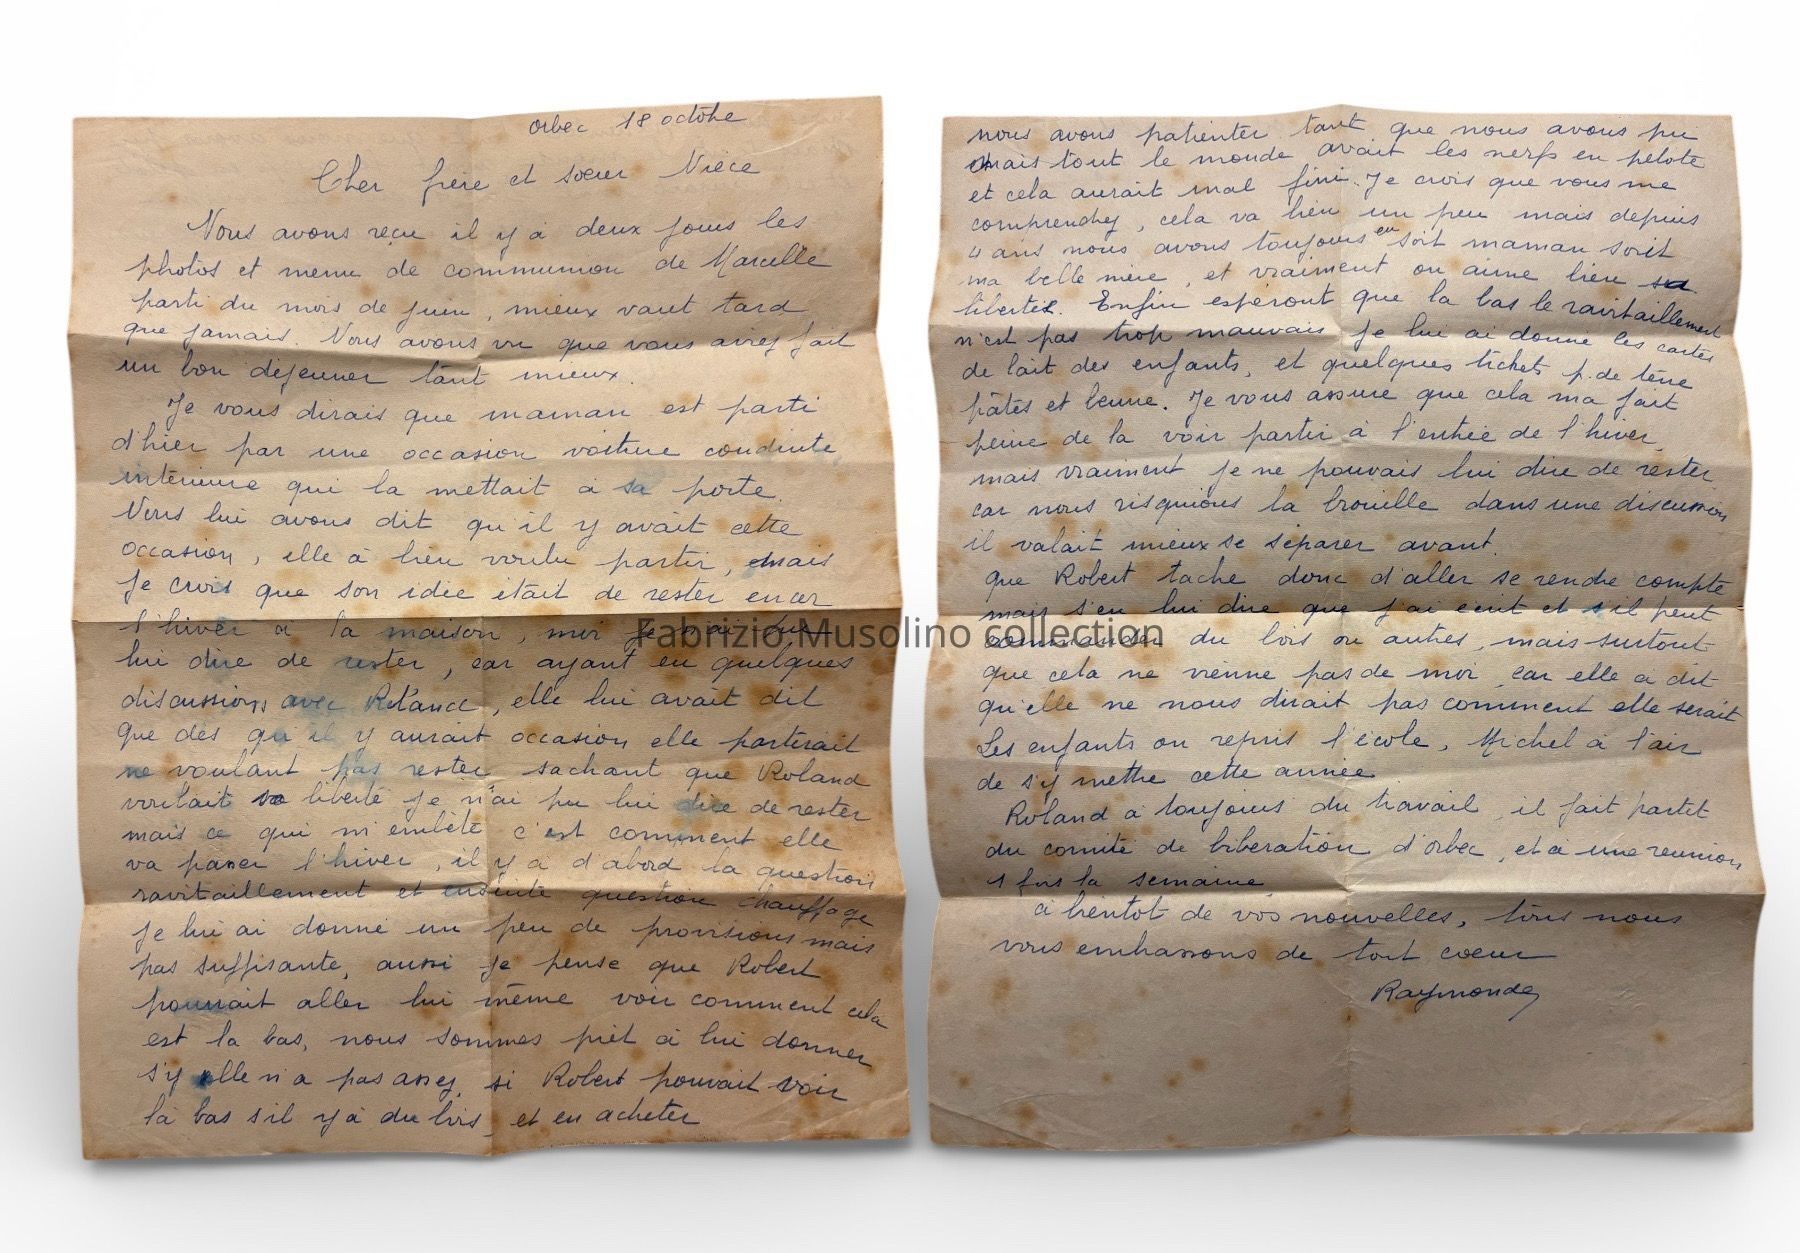 Orbec 18 octobre
Cher frère et soeur Nièce
Nous avons reçu il y à deux jours les
photos et menu de communion de Marcelle
parti du mois de juin, mieux vaut tard
que jamais. Nous avons vu que vous aviez fait
un bon déjeuner tant mieux.
Je vous dirais que maman est parti
d'hier par une occasion voiture conduite
intérieure qui la mettait à sa porte.
Nous lui avons dit qu'il y avait cette
occasion, elle à bien voulu partir, mais
je crois que son idée était de rester encor
l'hiver à la maison, moi je
lui dire de rester, car ayant eu quelques
discussions avec, elle lui avait dit
que dès qu'il y aurait occasion elle partirait
ne voulant pas rester sachant que Roland
voulait sa liberté je n'ai pu lui dire de rester
mais ce qui m'embête c'est comment elle
va passer l'hiver, il y à d'abord la question
ravitaillement et ensuite question chauffage
je lui ai donné un peu de provisions mais
pas suffisante, aussi je pense que Robert
pourrait aller lui même voir comment cela
est la bas, nous sommes prêt à lui donner
s'y elle n'a pas assez, si Robert pouvait voir
là bas s'il y à du bois, et en acheter
nous avons patienter tant que nous avons pu
mais tout le monde avait les nerfs en pelote
et cela aurait mal fini. Je crois que vous me
comprendrez, cela va bien un peu mais depuis
4 ans nous avons toujours eu soit maman soit
ma belle mère, et vraiment on aime bien sa
liberté. Enfin espéront que la bas le ravitaillement
n'est pas trop mauvais je lui ai donné les cartes
de lait des enfants, et quelques tickets p. de terre
pâtes et beurre. Je vous assure que cela ma fait
peine de la voir partir à l'entrée de l'hiver,
mais vraiment je ne pouvais lui dire de rester
car nous risquions la brouille dans une discussion
il valait mieux se séparer avant.
que Robert tache donc d'aller se rendre compte
mais s'en lui dire que j'ai écrit et s'il peut
commander du bois ou autres, mais surtout
que cela ne vienne pas de moi car elle à dit
qu'elle ne nous dirait pas comment elle serait
Les enfants on repris l'école, Michel à l'air
de s'y mettre cette année
Roland à toujours du travail, il fait partet
du comité de libération d'Orbec, et a une reunion
1 fois la semaine
à bientot de vos nouvelles, tous nous
vous embrassons de tout coeur
Raymonde
Fabrizio Musolino collection